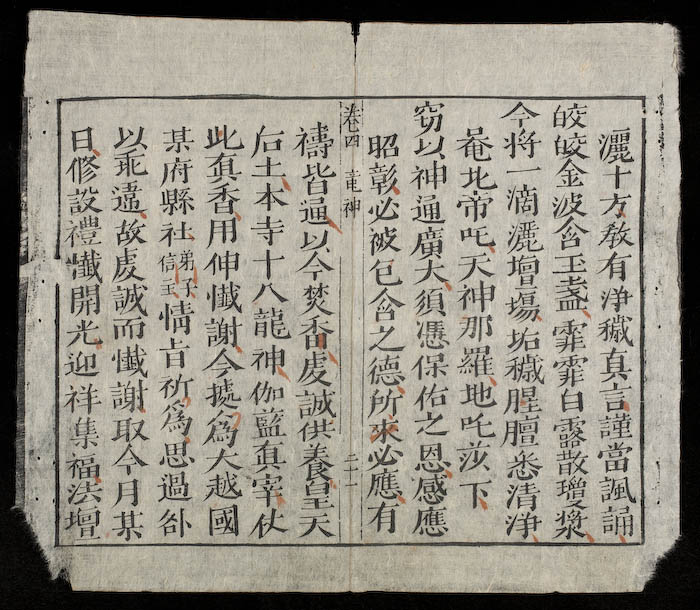 灑十方教有淨穢真言謹當諷誦
皎皎金波含玉盞霏霏白露散瓊漿
今將一滴灑壇場垢穢腥膻悉清淨
唵北帝吒天神那羅地吒莎下
窈以神通廣大須憑保佑之恩感應
昭彰必被包含之德所來必應有
卷四 竜神 二十一
禱皆通以今焚香虔誠供養皇天
后土本寺十八龍神伽藍真宰仗
此真香用伸懺謝今㨿為大越國
某府縣社弟子信主情旨祈為思過咎
以乖違故虔誠而懺謝取今月某
日修設禮懺開光迎祥集福法壇